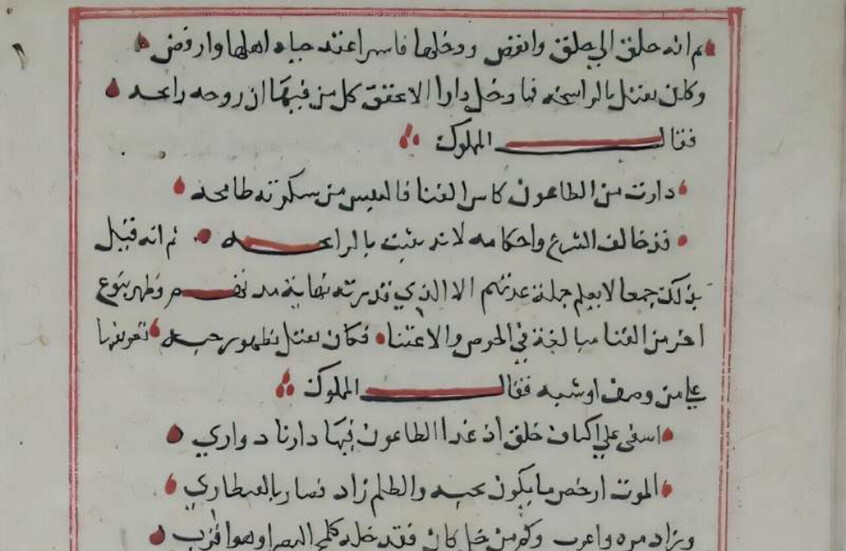 ثم انه حلق الي جلق وانقض ودخلها فاسر اعنه جياد اهلها وارفض
وكان يقتل بالرائحه فما دخل دارا الا تحقق كل من فيها ان روحه رايحه
فقال المملوك
دارت من الطاعون كاس الفنا فالنفس من سكرته طافحه
قد خالف الشرع واحكامه لانه يثبت بالرائحه ثم انه قتل
بذلك جمعا لا يعلم جملة عدتهم الا الذي قدر ته نهاية مدتهم وظهر بنوع
اخر من الفنا مبالغة في الحرص والاعتنا فكان يقتل بظهور حبه
علي من وصف او شبه فقال المملوك
اسفي علي اكناف جلق اذ غدا الطاعون فيها دارنا دواري
الموت ارخص ما يكون بحبه والظلم زاد فصار بالقنطاري
وزاد مره وكم من خل كان فقد خله كلمح البصر او هو اقرب